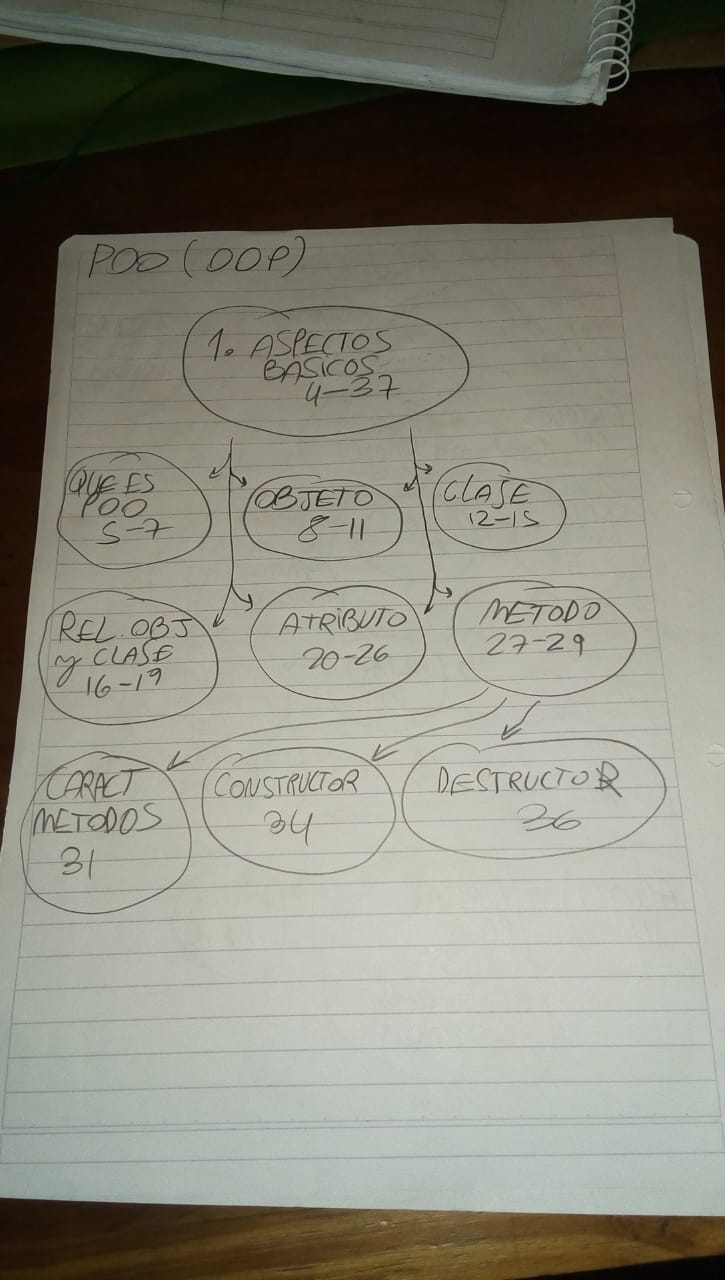 POO (OOP)
1. ASPECTOS
BASICOS
4-37
QUE ES
POO
5-7
OBJETO
8-11
CLASE
12-15
REL. OBJ
y CLASE
16-19
ATRIBUTO
20-26
METODO
27-29
CARACT
METODOS
31
CONSTRUCTOR
34
DESTRUCTOR
36